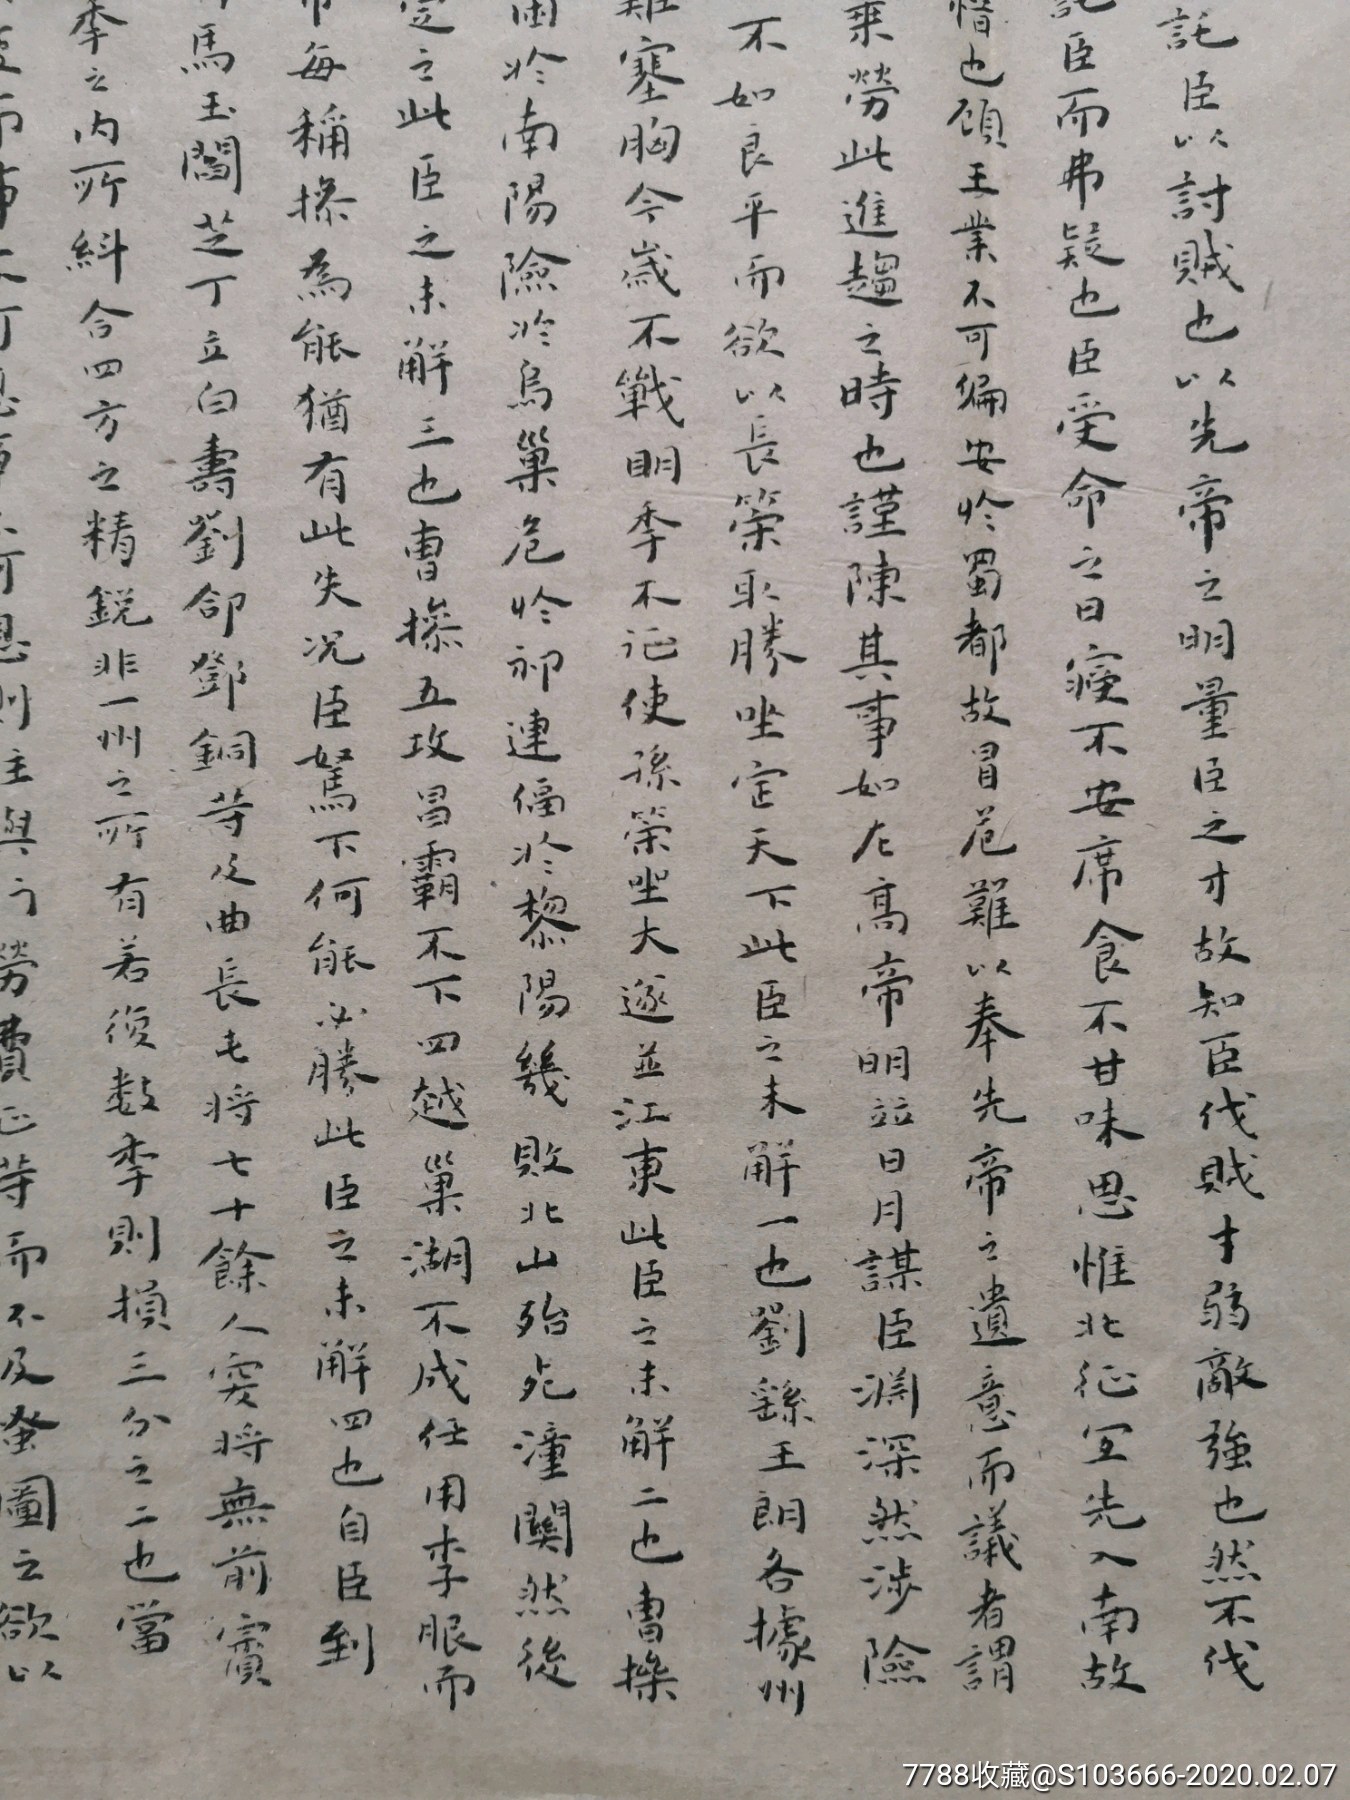 託臣以討賊也以先帝之明量臣之才故知臣伐賊才弱敵強也然不伐
託臣而弗疑也臣受命之日寢不安席食不甘味思惟北征宜先入南故
惜也顧王業不可偏安於蜀都故冒危難以奉先帝之遺意而議者謂
乘勞此進趨之時也謹陳其事如左高帝明並日月謀臣淵深然涉險
不如良平而欲以長策取勝坐定天下此臣之未解一也劉繇王朗各據州
難塞胸今歲不戰明季不征使孫策坐大遂並江東此臣之未解二也曹操
困於南陽險於烏巢危於祁連偪於黎陽幾敗北山殆死潼關然後
定之此臣之未解三也曹操五攻昌霸不下四越巢湖不成任用李服而
帝每稱操為能猶有此失况臣駑下何能必勝此臣之未解四也自臣到
馬玉閻芝丁立白壽劉郃鄧銅等及曲長屯将七十餘人突将無前賨
季之内所糾合四方之精銳非一州之所有若復数季則損三分之二也當
而事不可息事不可息則住與行勞費正等而不及蚤圖之欲以
7788收藏@S103666-2020.02.07